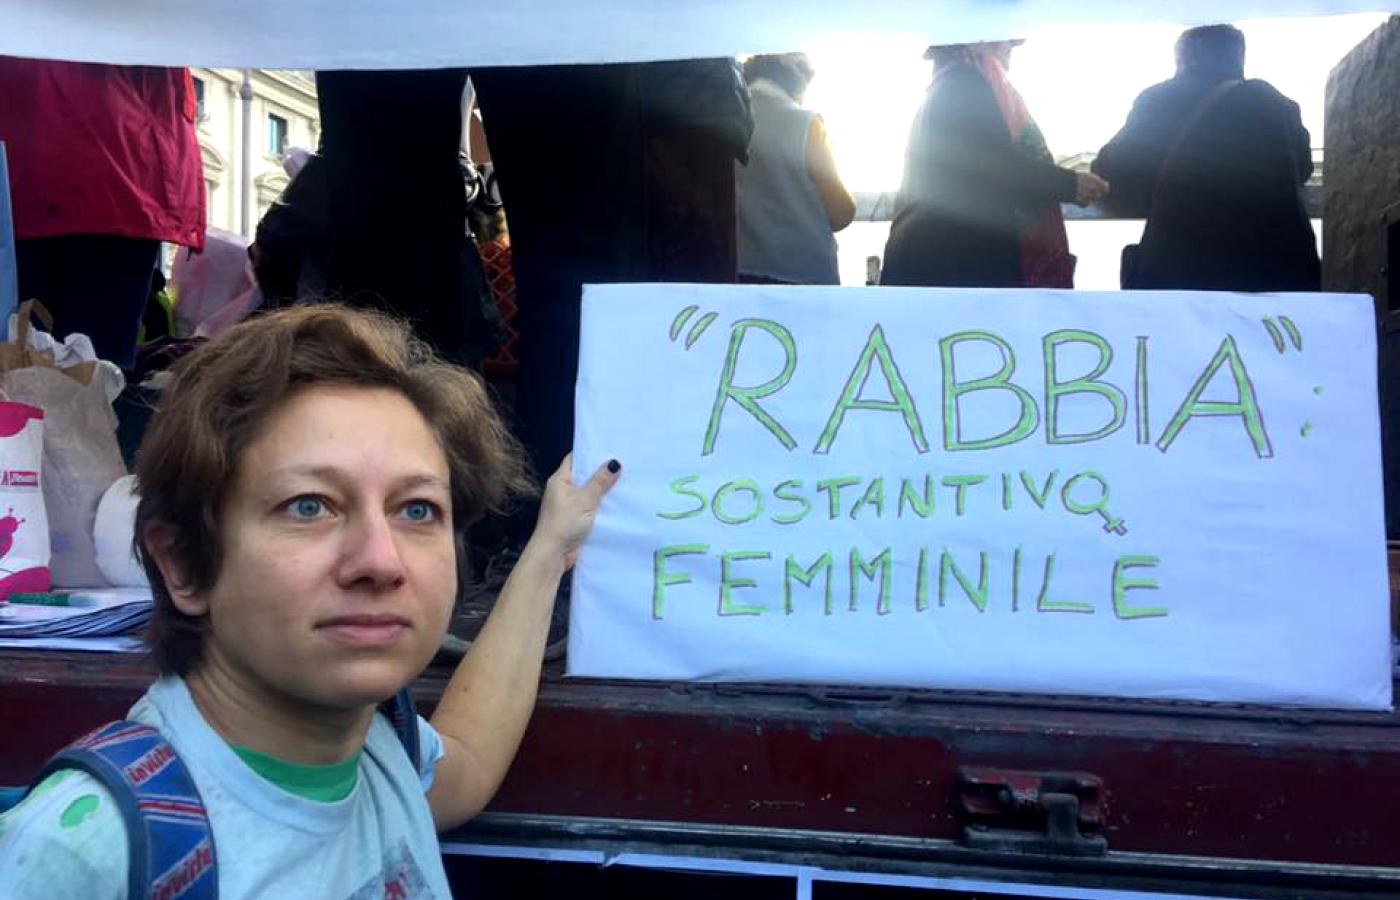 "RABBIA":
SOSTANTIVO
FEMMINILE
invicta
invicta